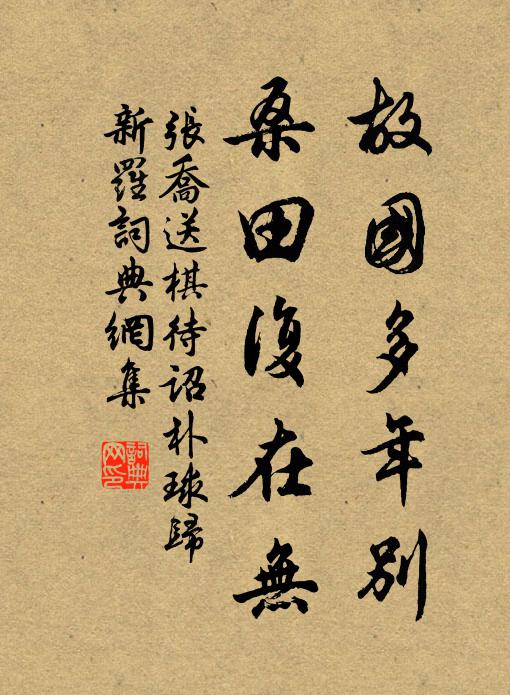 故國多年別
桑田復在無
張喬送棋待詔朴球歸
新羅詞典網集
詞典
网印